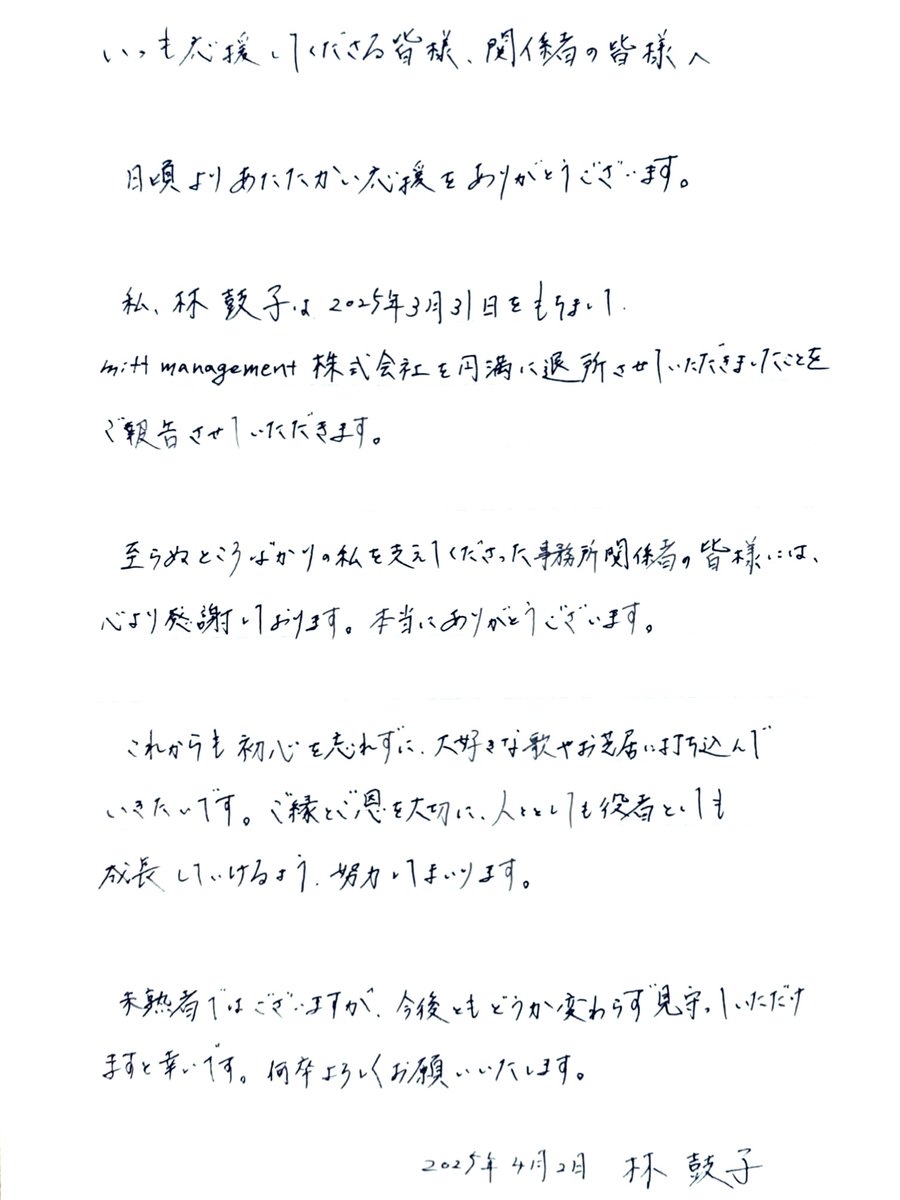 いつも応援してくださる皆様、関係者の皆様へ
日頃よりあたたかい応援をありがとうございます。
私、林 鼓子は2025年3月31日をもちまして、
mitt management 株式会社を円満に退所させていただきましたことを
ご報告させていただきます。
至らぬところばかりの私を支えてくださった事務所関係者の皆様には、
心より感謝しております。本当にありがとうございます。
これからも初心を忘れずに、大好きな歌やお芝居に打ち込んで
いきたいです。ご縁とご恩を大切に、人としても役者としても
成長していけるよう、努力してまいります。
未熟者ではございますが、今後ともどうか変わらず見守っていただけ
ますと幸いです。何卒よろしくお願いいたします。
2025年4月2日 林 鼓子